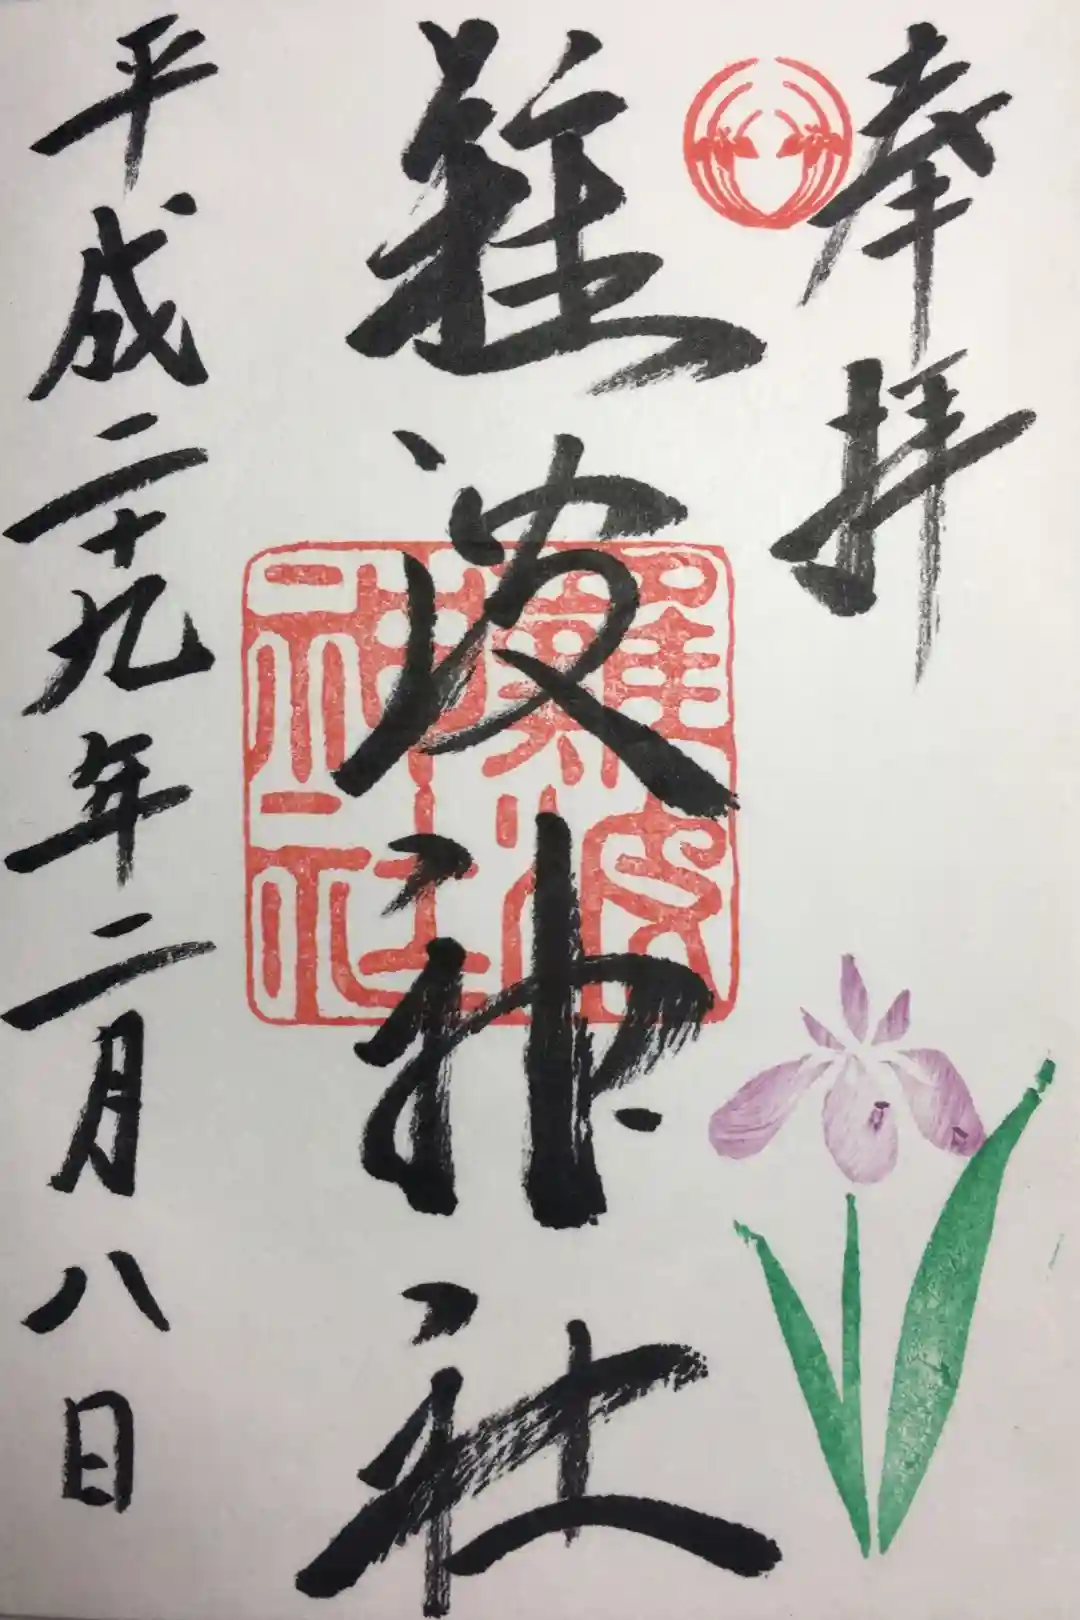 奉拝
難波神社
平成二十九年二月八日
難波
神社